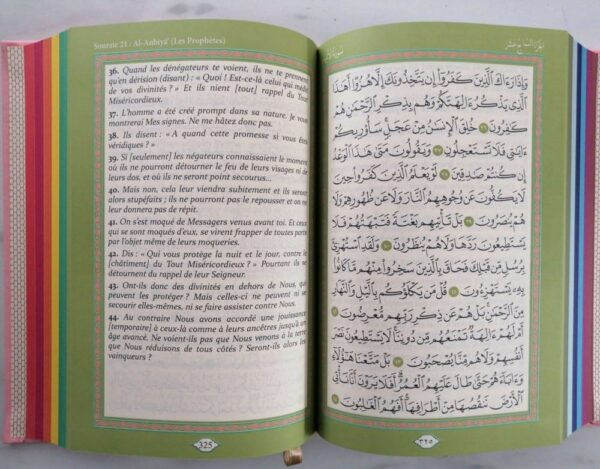 Sourate 21 : Al-Anbiyâ' (Les Prophètes)
36. Quand les dénégateurs te voient, ils ne te prennent
qu'en dérision (disant) : « Quoi ! Est-ce là celui qui médit
de vos divinités ? » Et ils nient [tout] rappel du Tout
Miséricordieux.
37. L'homme a été créé prompt dans sa nature. Je vous
montrerai Mes signes. Ne me hâtez donc pas.
38. Ils disent : « A quand cette promesse si vous êtes
véridiques ? »
39. Si [seulement] les négateurs connaissaient le moment
où ils ne pourront détourner le feu de leurs visages ni de
leurs dos, et où ils ne seront point secourus...
40. Mais non, cela leur viendra subitement et ils seront
alors stupéfaits ; ils ne pourront pas le repousser et on ne
leur donnera pas de répit.
41. On s'est moqué de Messagers venus avant toi. Et ceux
qui se sont moqués d'eux, se virent frapper de toutes parts
par l'objet même de leurs moqueries.
42. Dis : « Qui vous protège la nuit et le jour, contre le
[châtiment] du Tout Miséricordieux ? » Pourtant ils se
détournent du rappel de leur Seigneur.
43. Ont-ils donc des divinités en dehors de Nous, qui
peuvent les protéger ? Mais celles-ci ne peuvent ni se
secourir elles-mêmes, ni se faire assister contre Nous.
44. Au contraire Nous avons accordé une jouissance
[temporaire] à ceux-là comme à leurs ancêtres jusqu'à un
âge avancé. Ne voient-ils pas que Nous venons à la terre
que Nous réduisons de tous côtés ? Seront-ils alors les
vainqueurs ?
325
الجزء السابع عشر
وَإِذَا رَءَاكَ ٱلَّذِينَ كَفَرُوٓا۟ إِن يَتَّخِذُونَكَ إِلَّا هُزُوًا أَهَٰذَا
ٱلَّذِى يَذْكُرُ ءَالِهَتَكُمْ وَهُم بِذِكْرِ ٱلرَّحْمَٰنِ هُمْ
كَٰفِرُونَ ٣٦ خُلِقَ ٱلْإِنسَٰنُ مِنْ عَجَلٍ سَأُو۟رِيكُمْ
ءَايَٰتِى فَلَا تَسْتَعْجِلُونِ ٣٧ وَيَقُولُونَ مَتَىٰ هَٰذَا ٱلْوَعْدُ
إِن كُنتُمْ صَٰدِقِينَ ٣٨ لَوْ يَعْلَمُ ٱلَّذِينَ كَفَرُوا۟ حِينَ
لَا يَكُفُّونَ عَن وُجُوهِهِمُ ٱلنَّارَ وَلَا عَن ظُهُورِهِمْ وَلَا
هُمْ يُنصَرُونَ ٣٩ بَلْ تَأْتِيهِم بَغْتَةً فَتَبْهَتُهُمْ فَلَا
يَسْتَطِيعُونَ رَدَّهَا وَلَا هُمْ يُنظَرُونَ ٤٠ وَلَقَدِ ٱسْتُهْزِئَ
بِرُسُلٍ مِّن قَبْلِكَ فَحَاقَ بِٱلَّذِينَ سَخِرُوا۟ مِنْهُم مَّا كَانُوا۟
بِهِۦ يَسْتَهْزِءُونَ ٤١ قُلْ مَن يَكْلَؤُكُم بِٱلَّيْلِ وَٱلنَّهَارِ
مِنَ ٱلرَّحْمَٰنِ بَلْ هُمْ عَن ذِكْرِ رَبِّهِم مُّعْرِضُونَ ٤٢
أَمْ لَهُمْ ءَالِهَةٌ تَمْنَعُهُم مِّن دُونِنَا لَا يَسْتَطِيعُونَ نَصْرَ
أَنفُسِهِمْ وَلَا هُم مِّنَّا يُصْحَبُونَ ٤٣ بَلْ مَتَّعْنَا هَٰٓؤُلَآءِ
وَءَابَآءَهُمْ حَتَّىٰ طَالَ عَلَيْهِمُ ٱلْعُمُرُ أَفَلَا يَرَوْنَ أَنَّا نَأْتِى
ٱلْأَرْضَ نَنقُصُهَا مِنْ أَطْرَافِهَآ أَفَهُمُ ٱلْغَٰلِبُونَ ٤٤
٣٢٥